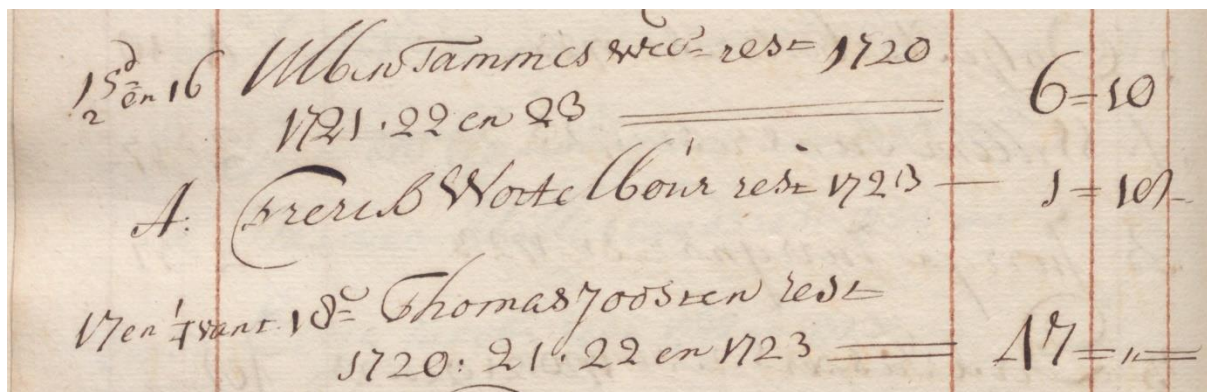 ½ 15d en 16 Ulben Tammes wed= rest 1720
1721 · 22 en 23 6=10
4: Frerick Wortelboùr rest 1723 — 1=10
17 en ¼ vant 18e Thomas Joosten rest
1720: 21 · 22 en 1723 17=,,—